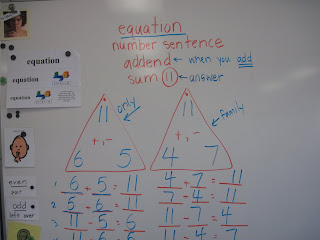 equation
number sentence
addend ← when you add
sum 11 ← answer
equation
equation
equation
11
only
+, -
6 5
11
family
+, -
4 7
even
pair
odd
left over
1. 6 + 5 = 11
2. 5 + 6 = 11
3. 11 - 5 = 6
4 + 7 = 11
7 + 4 = 11
11 - 7 = 4
11 - 4 = 7